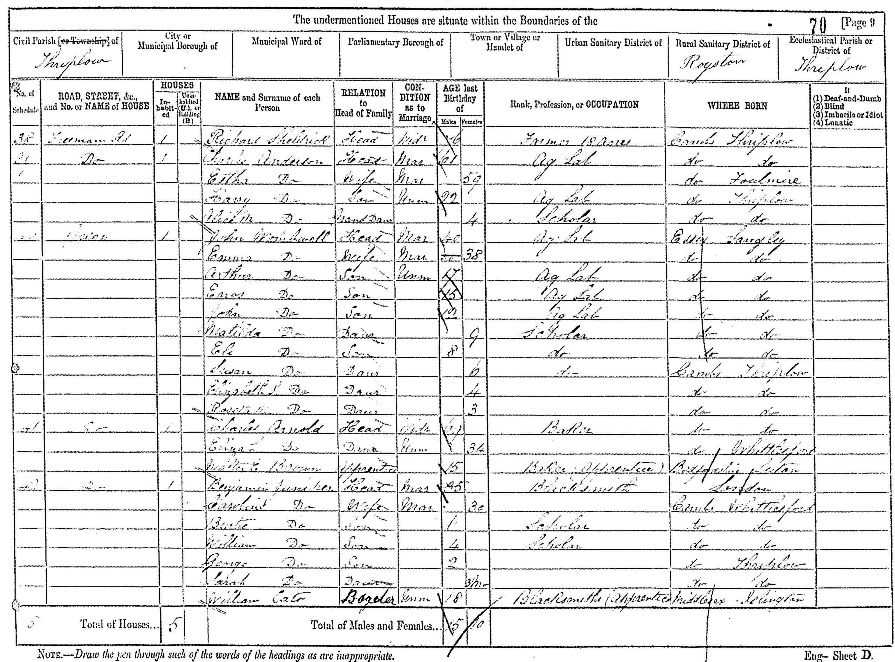 The undermentioned Houses are situate within the Boundaries of the 70 [Page 9
Civil Parish [or Township] of
City or Municipal Borough of
Municipal Ward of
Parliamentary Borough of
Town or Village or Hamlet of
Urban Sanitary District of
Rural Sanitary District of
Ecclesiastical Parish or District of
Thriplow Royston Thriplow
No. of Schedule
ROAD, STREET, &c., and No. or NAME of HOUSE
HOUSES
In-habit-ed
NAME and Surname of each Person
RELATION to Head of Family
CON-DITION as to Marriage
AGE last Birthday of
Males Females
Rank, Profession, or OCCUPATION
WHERE BORN
If
(1) Deaf-and-Dumb
(2) Blind
(3) Imbecile or Idiot
(4) Lunatic
38 1 Richard Head Farmer 18 Acres Cambs Thriplow
39 Do 1 Anderson Head Mar 61 Ag Lab do do
Do Wife Mar 59 do Foulmire
Harry Do Son Unm 22 Ag Lab do Thriplow
Do Grand Daur 4 Scholar do do
1 John Head Mar 40 Ag Lab Essex Langley
Emma Do Wife Mar 38 do do
Arthur Do Son Unm 17 Ag Lab do do
Do Son 15 Ag Lab do do
John Do Son 12 Ag Lab do do
Matilda Do Daur 9 Scholar do do
Eli Do Son 8 do do do
Susan Do Daur 6 do Cambs Thriplow
Elizabeth S. Do Daur 4 do do
Do Daur 3 do do
Do 1 Charles Arnold Head Baker do do
Do Daur Unm 34 do Whittlesford
Walter Brown Apprentice 15 Baker (Apprentice)
Do 1 Benjamin Juniper Head Mar 35 Blacksmith London
Caroline Do Wife Mar 30 Cambs Whittlesford
Do Son Scholar do do
William Do Son 4 Scholar do do
George Do Son 2 do Thriplow
Sarah Do Daur 3mo do do
William Cato Boarder Unm 18 Blacksmiths (Apprentice Middlesex Islington
5 Total of Houses... 5 Total of Males and Females... 15 10
NOTE.—Draw the pen through such of the words of the headings as are inappropriate. Eng— Sheet D.